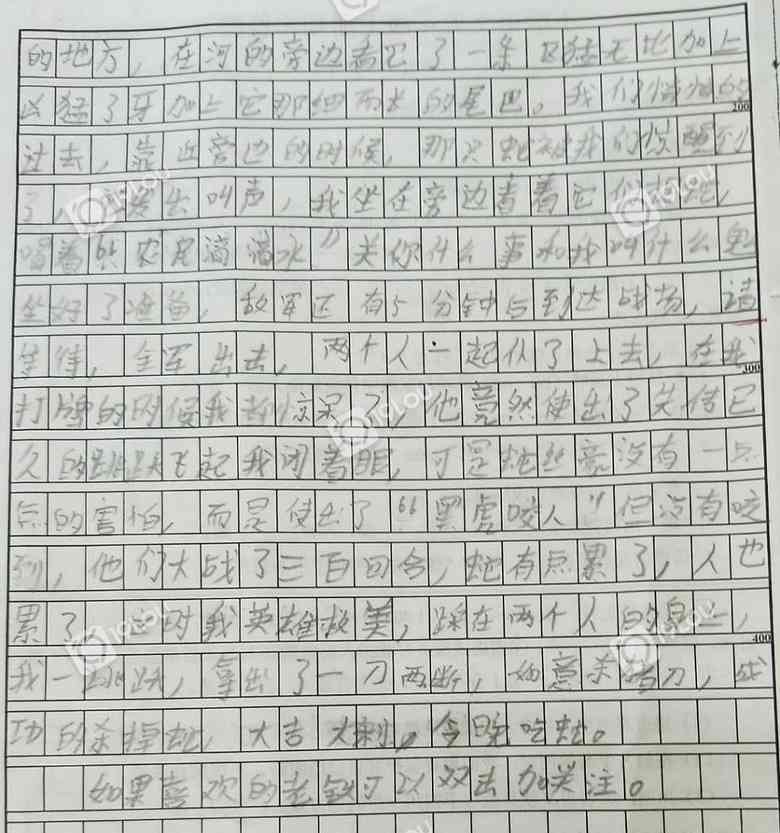 的地方，在河的旁边看它了一条凶猛无比加上
凶猛了牙加上它那细而长的尾巴。我们悄悄的
200
过去，靠近旁边的时候，那只蛇被我们惊醒到
了，发出叫声，我坐在旁边看着它们
唱着“农民滴滴水”关你什么事和我叫什么鬼
坐好了准备，敌军还有5分钟与到达战场，请
等待，全军出击，两个人一起仆了上去，在我
300
打牌的时候我都惊呆了，他竟然使出了失传已
久的跳跃飞起我闭着眼，可是蛇丝毫没有一点
点的害怕，而是使出了“黑虎咬人”但没有咬
到，他们大战了三百回合，蛇有点累了，人也
累了，这时我英雄救美，踩在两个人的肩上，
400
我一跳跃，拿出了一刀两断，如意杀猪刀，成
功的杀掉蛇，大吉大利，今晚吃蛇。
如果喜欢的老铁可以双击加关注。